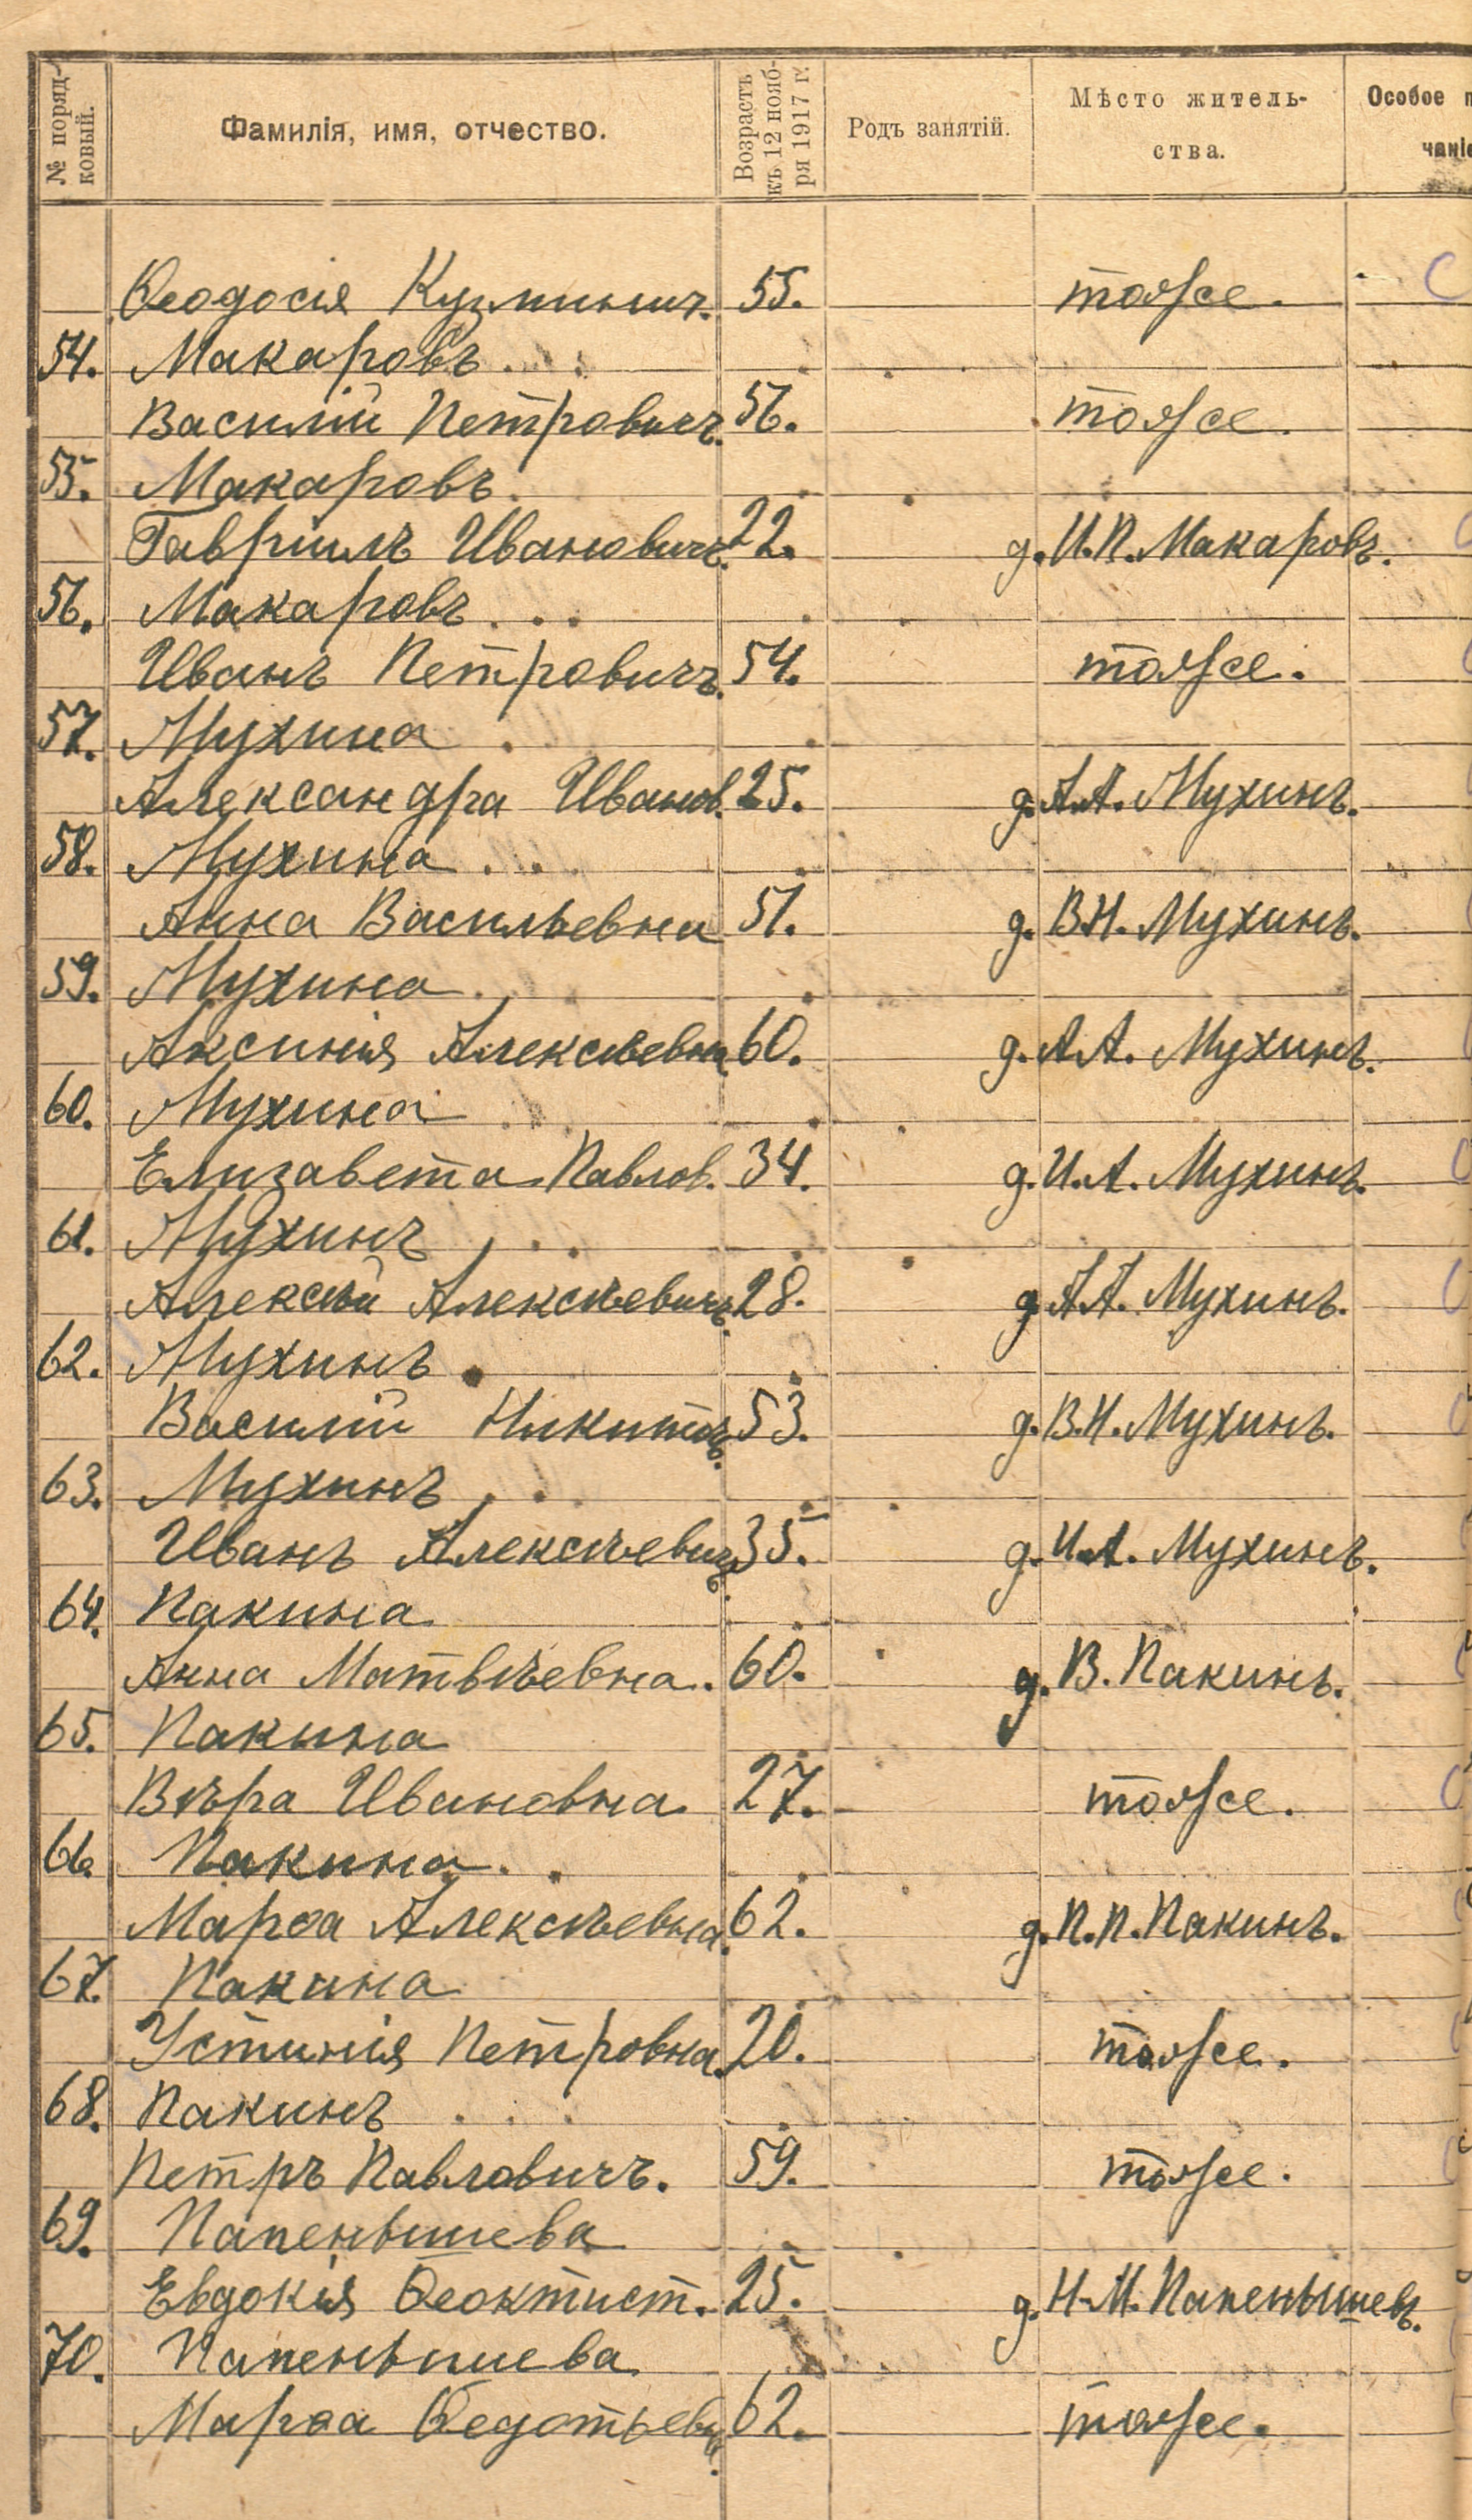 № поряд-
ковый.
Фамилія, имя, отчество.
Возрастъ
къ 12 нояб-
ря 1917 г.
Родъ занятій.
Мѣсто житель-
ства.
Особое
Ѳеодосія Кузминич. 55. тоже.
54. Макаровъ
Василій Петровичъ. 56. тоже.
55. Макаровъ.
Гавріилъ Ивановичъ. 22. д. И. П. Макаровъ.
56. Макаровъ
Иванъ Петровичъ. 54. тоже.
57. Мухина
Александра Иванов. 25. д. А. А. Мухинъ.
58. Мухина
Анна Васильевна 51. д. В. Н. Мухинъ.
59. Мухина
Аксинія Алексѣевна 60. д. А А. Мухинъ.
60. Мухина
Елизавета Павлов. 34. д. И. А. Мухинъ.
61. Мухинъ
Алексѣй Алексѣевичъ. 28. д. А А. Мухинъ.
62. Мухинъ
Василій Никитичъ. 53. д. В. Н. Мухинъ.
63. Мухинъ
Иванъ Алексѣевичъ 35. д. И. А. Мухинъ.
64. Пакина
Анна Матвѣевна. 60. д. В. Пакинъ.
65. Пакина
Вѣра Ивановна. 27. тоже.
66. Пакина
Марѳа Алексѣевна. 62. д. П. П. Пакинъ.
67. Пакина
Устинія Петровна. 20. тоже.
68. Пакинъ
Петръ Павловичъ. 59. тоже.
69. Папенышева
Евдокія Ѳеоктист. 25. д. Н. М. Папенышевъ.
70. Папенышева
Марѳа Ѳедотьевн. 62. тоже.